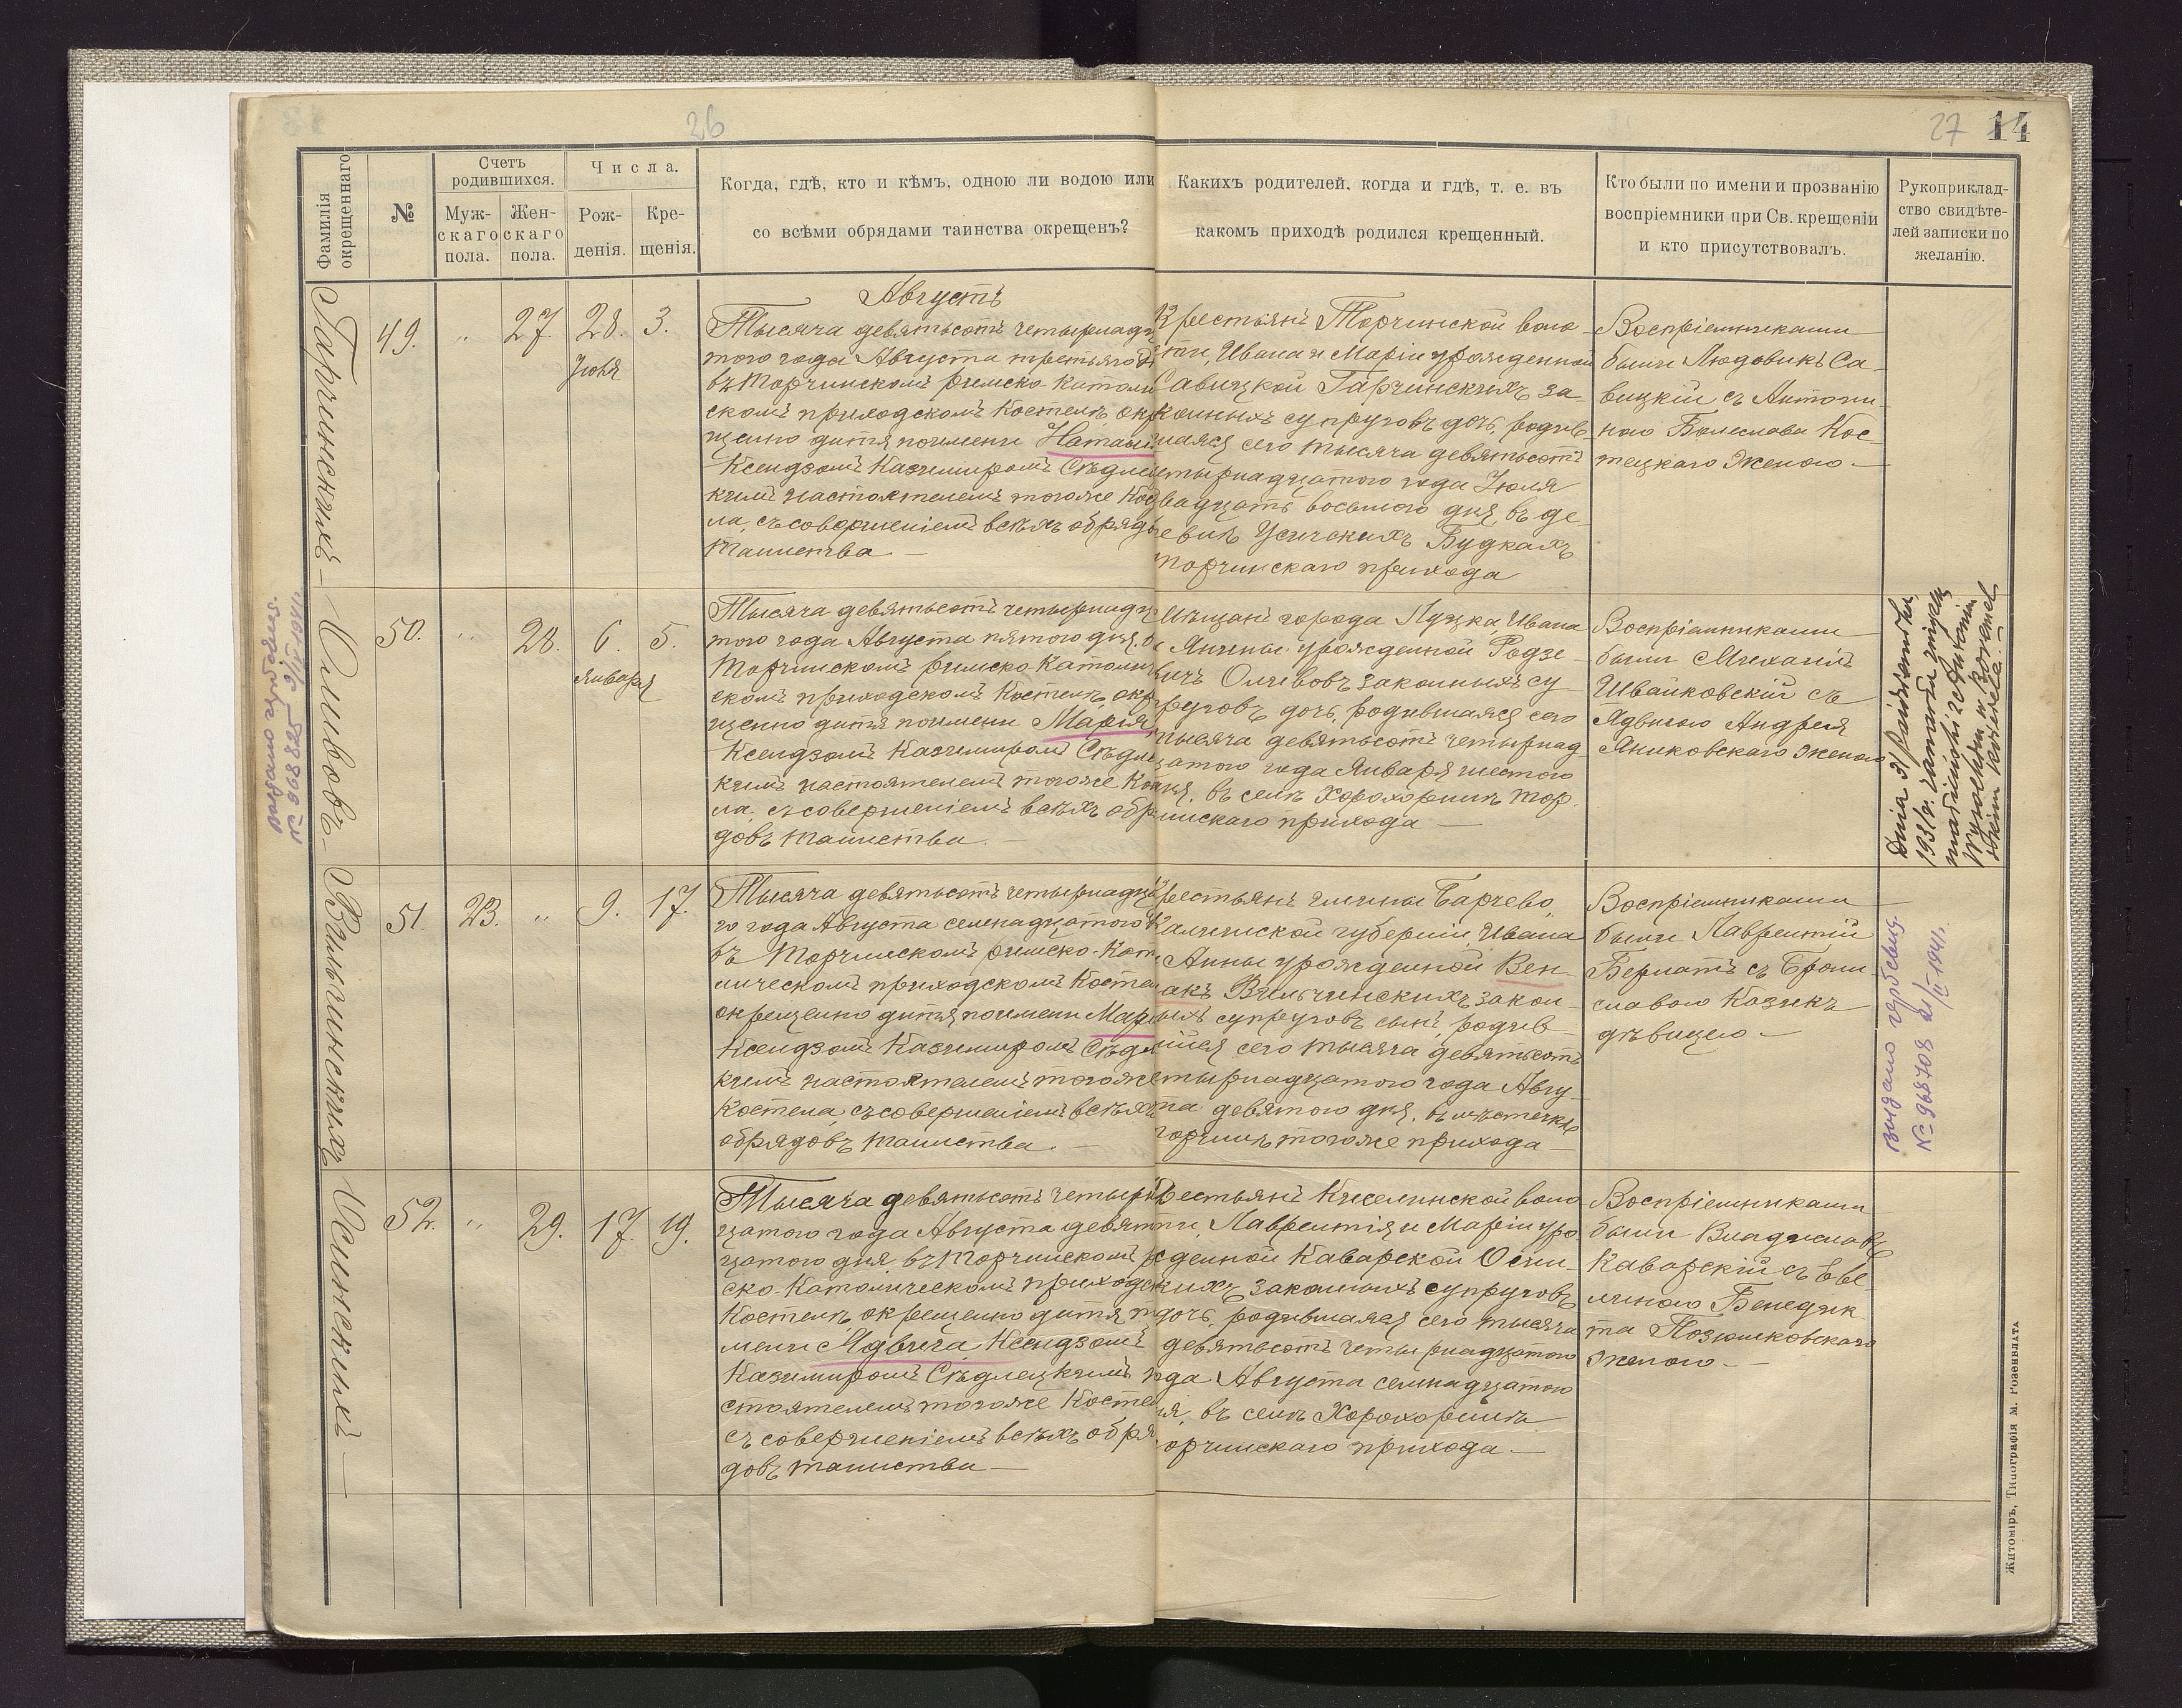 26
27 14
Фамилія окрещеннаго
№
Счетъ родившихся.
Мужскаго пола.
Женскаго пола.
Числа.
Рожденія.
Крещенія.
Когда, гдѣ, кто и кѣмъ, одною ли водою или
со всѣми обрядами таинства окрещенъ?
Какихъ родителей, когда и гдѣ, т. е. въ
какомъ приходѣ родился крещенный.
Кто были по имени и прозванію
воспріемники при Св. крещеніи
и кто присутствовалъ.
Рукоприклад-
ство свидѣте-
лей записки по
желанію.
Августъ
Гарчинскихъ
49. " 27. 28. 3.
Іюля
Тысяча девятьсотъ четырнадц
того года Августа третьяго д
въ Торчинскомъ римско католи
скомъ приходскомъ Костелѣ, окр
щено дитя по имени Наталі
Ксендзомъ Казимиромъ Сѣдлец
кимъ настоятелемъ тогоже Кос
ла, съ совершеніемъ всѣхъ обрядо
таинства —
Крестьянъ Торчинской воло-
сти, Ивана и Маріи урожденной
Савицкой Гарчинскихъ, за-
конныхъ супруговъ дочь, родив-
шаяся сего тысяча девятьсотъ
етырнадцатого года Іюля
вадцать восьмого дня, въ де-
евнѣ Усичскихъ Будкахъ
Торчинскаго прихода
Воспріемниками
были Людовикъ Са-
вицкій съ Антони-
ною Болеслава Кос-
тецкаго женою —
Оливовъ
50. " 28. 6. 5.
Января
Тысяча девятьсотъ четырнадц
того года Августа пятого дня, в
Торчинскомъ римско-католич
скомъ приходскомъ Костелѣ, окр
щено дитя по имени Марія
Ксендзомъ Казимиромъ Сѣдле
кимъ настоятелемъ тогоже Кос
ла, съ совершеніемъ всѣхъ обр
довъ таинства. —
Мѣщанъ города Луцка, Ивана
и Янины урожденной Родзе-
вичъ Оливовъ законныхъ су-
пруговъ дочь, родившаяся сего
тысяча девятьсотъ четырнад
цатого года Января шестого
дня, въ селѣ Хорохоринѣ Тор-
чинскаго прихода —
Воспріемниками
были Михаилъ
Швайковскій съ
Ядвигою Андрея
Яниковскаго женою
Dnia 31 października
1931 r. zawarła związek
małżeński z Antonim
w Boremel
skim kościele.
видано
№ 968825 3/IV 1941
Вильчинскихъ
51. 23. " 9. 17.
Тысяча девятьсотъ четырнадца
го года Августа семнадцатого
въ Торчинскомъ римско-като
лическомъ приходскомъ Косте
окрещено дитя по имени Мар
Ксендзомъ Казимиромъ Сѣдл
кимъ настоятелемъ тогоже
Костела, съ совершеніемъ всѣхъ
обрядовъ таинства. —
рестьянъ гмины Барчево,
Калишской губерніи, Ивана
Анны урожденной Вен-
акъ Вильчинскихъ закон-
ныхъ супруговъ сынъ, родив-
шійся сего тысяча девятьсотъ
етырнадцатого года Авгу-
ста девятого дня, въ мѣстечкѣ
Торчинѣ тогоже прихода —
Воспріемниками
были Лаврентій
Бернатъ съ Брони-
славою Казикъ
дѣвицею —
видано
№ 968708 21/II 1941.
Осинскихъ
52. " 29. 17. 19.
Тысяча девятьсотъ четырн
цатого года Августа девятн
цатого дня, въ Торчинскомъ р
ско-католическомъ приходск
Костелѣ, окрещено дитя по
мени Ядвига Ксендзомъ
Казимиромъ Сѣдлецкимъ н
стоятелемъ тогоже Косте
съ совершеніемъ всѣхъ обря
довъ таинства —
рестьянъ Киселинской воло
сти, Лаврентія и Маріи уро
жденной Каварской Осин-
скихъ, законныхъ супруговъ
дочь, родившаяся сего тысяча
девятьсотъ четырнадцатого
ода Августа семнадцатого
ня, въ селѣ Хорохоринѣ
орчинскаго прихода —
Воспріемниками
были Владиславъ
Каварскій съ Еве-
линою Бенедик-
та Познжковскаго
женою —
Житоміръ, Типографія М. Розенвлата